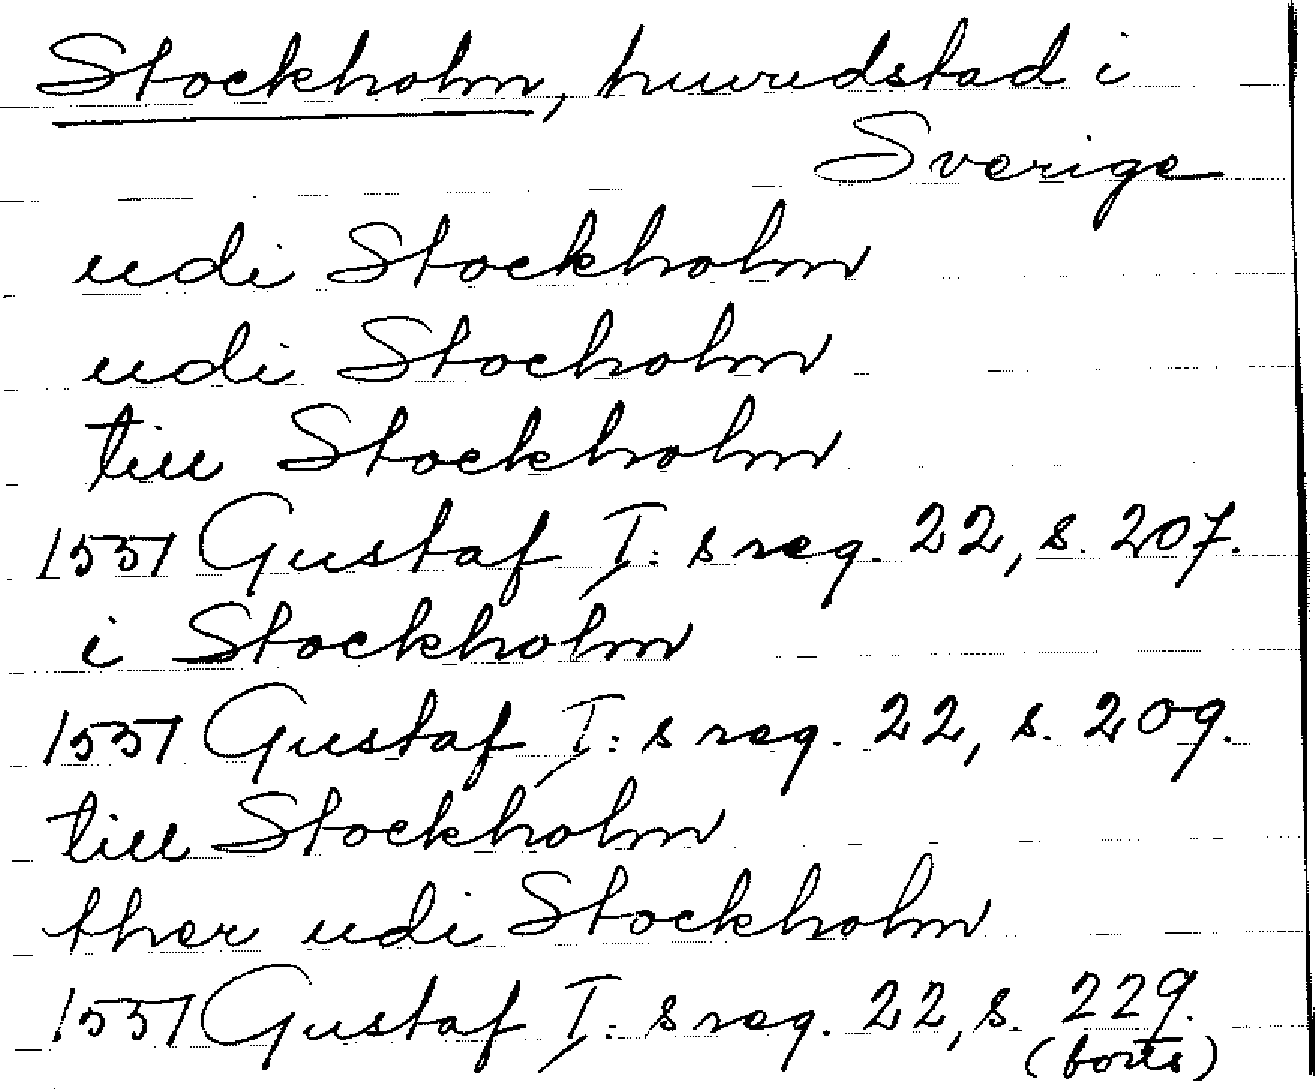 Stockholm, huvudstad i
Sverige
udi Stockholm
udi Stocholm
till Stockholm
1551 Gustaf I: s reg. 22, s. 207.
i Stockholm
1551 Gustaf I: s reg. 22, s. 209.
till Stockholm
ther udi Stockholm
1551 Gustaf I: s reg. 22, s. 229.
(forts)